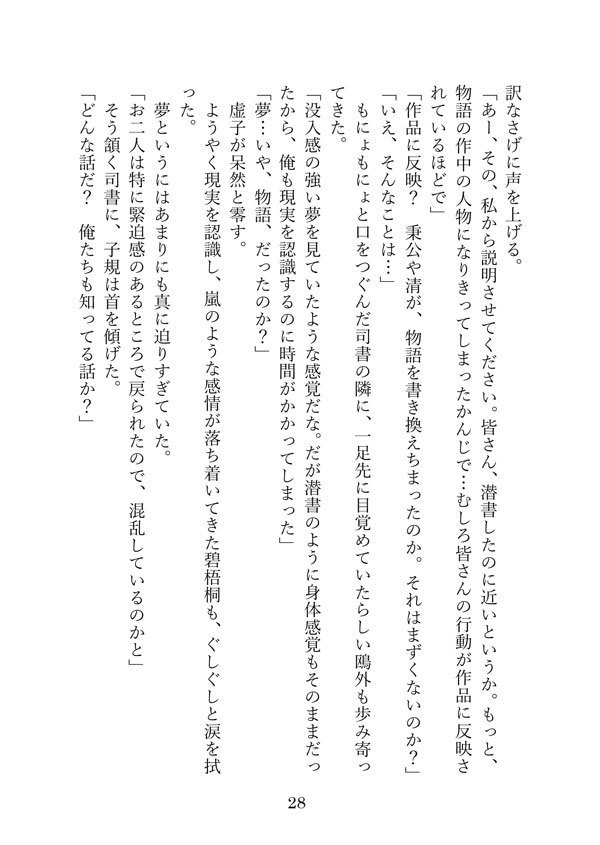 訳なさげに声を上げる。
「あー、その、私から説明させてください。皆さん、潜書したのに近いというか。もっと、
物語の作中の人物になりきってしまったかんじで…むしろ皆さんの行動が作品に反映さ
れているほどで」
「作品に反映?　秉公や清が、物語を書き換えちまったのか。それはまずくないのか?」
「いえ、そんなことは…」
　もにょもにょと口をつぐんだ司書の隣に、一足先に目覚めていたらしい鴎外も歩み寄っ
てきた。
「没入感の強い夢を見ていたような感覚だな。だが潜書のように身体感覚もそのままだっ
たから、俺も現実を認識するのに時間がかかってしまった」
「夢…いや、物語、だったのか?」
　虚子が呆然と零す。
　ようやく現実を認識し、嵐のような感情が落ち着いてきた碧梧桐も、ぐしぐしと涙を拭
った。
　夢というにはあまりにも真に迫りすぎていた。
「お二人は特に緊迫感のあるところで戻られたので、混乱しているのかと」
　そう頷く司書に、子規は首を傾げた。
「どんな話だ?　俺たちも知ってる話か?」
28